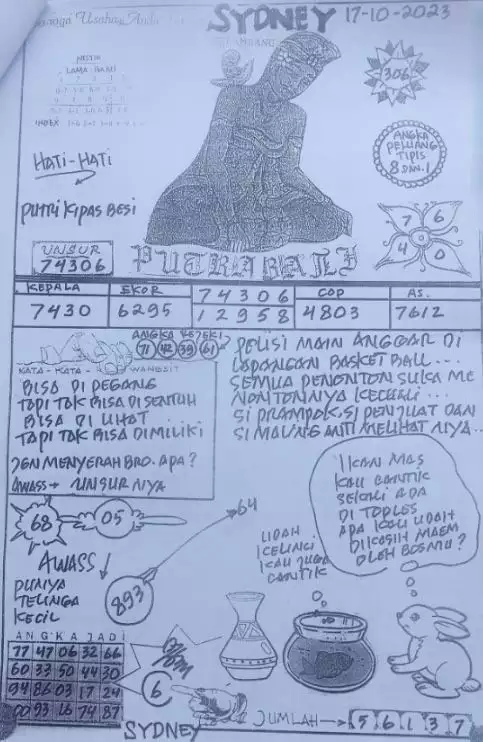 SYDNEY 17-10-2023
MISTIK
LAMA - BARU
INDEX
306
HATI-HATI
ANGKA
PELUANG
TIPIS
8 DAN 1
PUTRI KIPAS BESI
7 6
4 0
UNSUR
74306
PUTRA BALI
KEPALA EKOR 74306 COP AS.
7430 6295 12958 4803 7612
ANGKA REJEKI
71 42 39 61
KATA - KATA WANGSIT
BISA DI PEGANG
TAPI TAK BISA DI SENTUH
BISA DI LIHAT
TAPI TAK BISA DI MILIKI
JGN MENYERAH BRO. APA?
AWASS → UNSUR NIYA
POLISI MAIN ANGGAR DI
LAPANGAN BASKET BALL....
SEMUA PENONTON SUKA ME
NONTONNYA KECUALI...
SI PRAMPOK, SI PENJUAT DAN
SI MALING ANTI MELIHAT NIYA..
64
68 05
IKAN MAS
KAU CANTIK
SEKALI ADA
DI TOPLES
APA KAU UDAH
DIKASIH MAEM
OLEH BOSMU?
UDAH
KELINCI
KAU JUGA
CANTIK
AWASS
PUNYA
TELINGA
KECIL
893
ANGKA JADI
77 47 06 32 66
60 33 50 44 30
94 86 03 17 24
00 93 16 74 87
6
SYDNEY
JUMLAH → 5 6 1 3 7